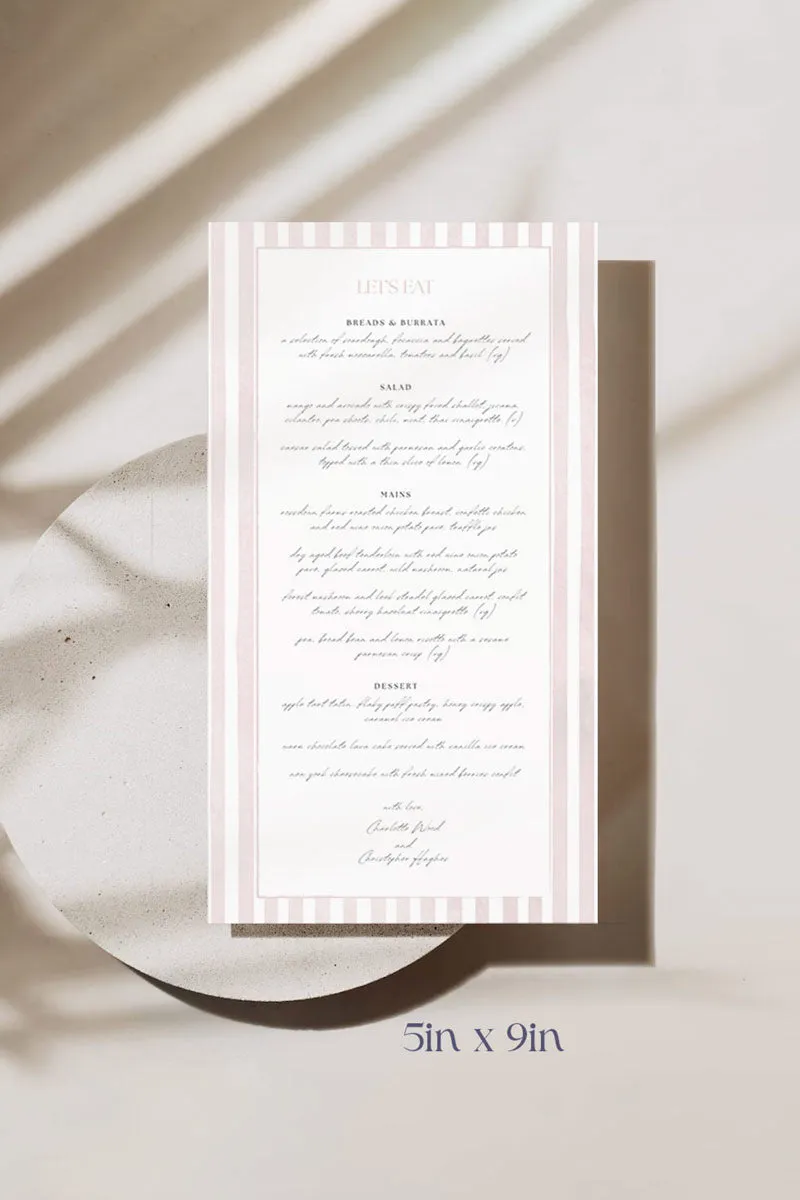 LET'S EAT
BREADS & BURRATA
a selection of sourdough, focaccia and baguettes served
with fresh mozzarella, tomatoes and basil (vg)
SALAD
mango and avocado with crispy fried shallot, jicama,
cilantro, pea shoots, chile, mint, thai vinaigrette (v)
caesar salad tossed with parmesan and garlic croutons,
topped with a thin slice of lemon (vg)
MAINS
farms roasted chicken breast, confetti chicken
and red wine onion potato pave, truffle jus
dry aged beef tenderloin with red wine onion potato
pave, glazed carrot, wild mushroom, natural jus
forest mushroom and leek strudel glazed carrot, confit
tomato, sherry hazelnut vinaigrette (vg)
pea, broad bean and lemon risotto with a sesame
parmesan crisp (vg)
DESSERT
apple tart tatin, flaky puff pastry, honey crispy apple,
caramel ice cream
warm chocolate lava cake served with vanilla ice cream
new york cheesecake with fresh mixed berries confit
with love,
Charlotte Wood
and
Christopher Hughes
5in x 9in